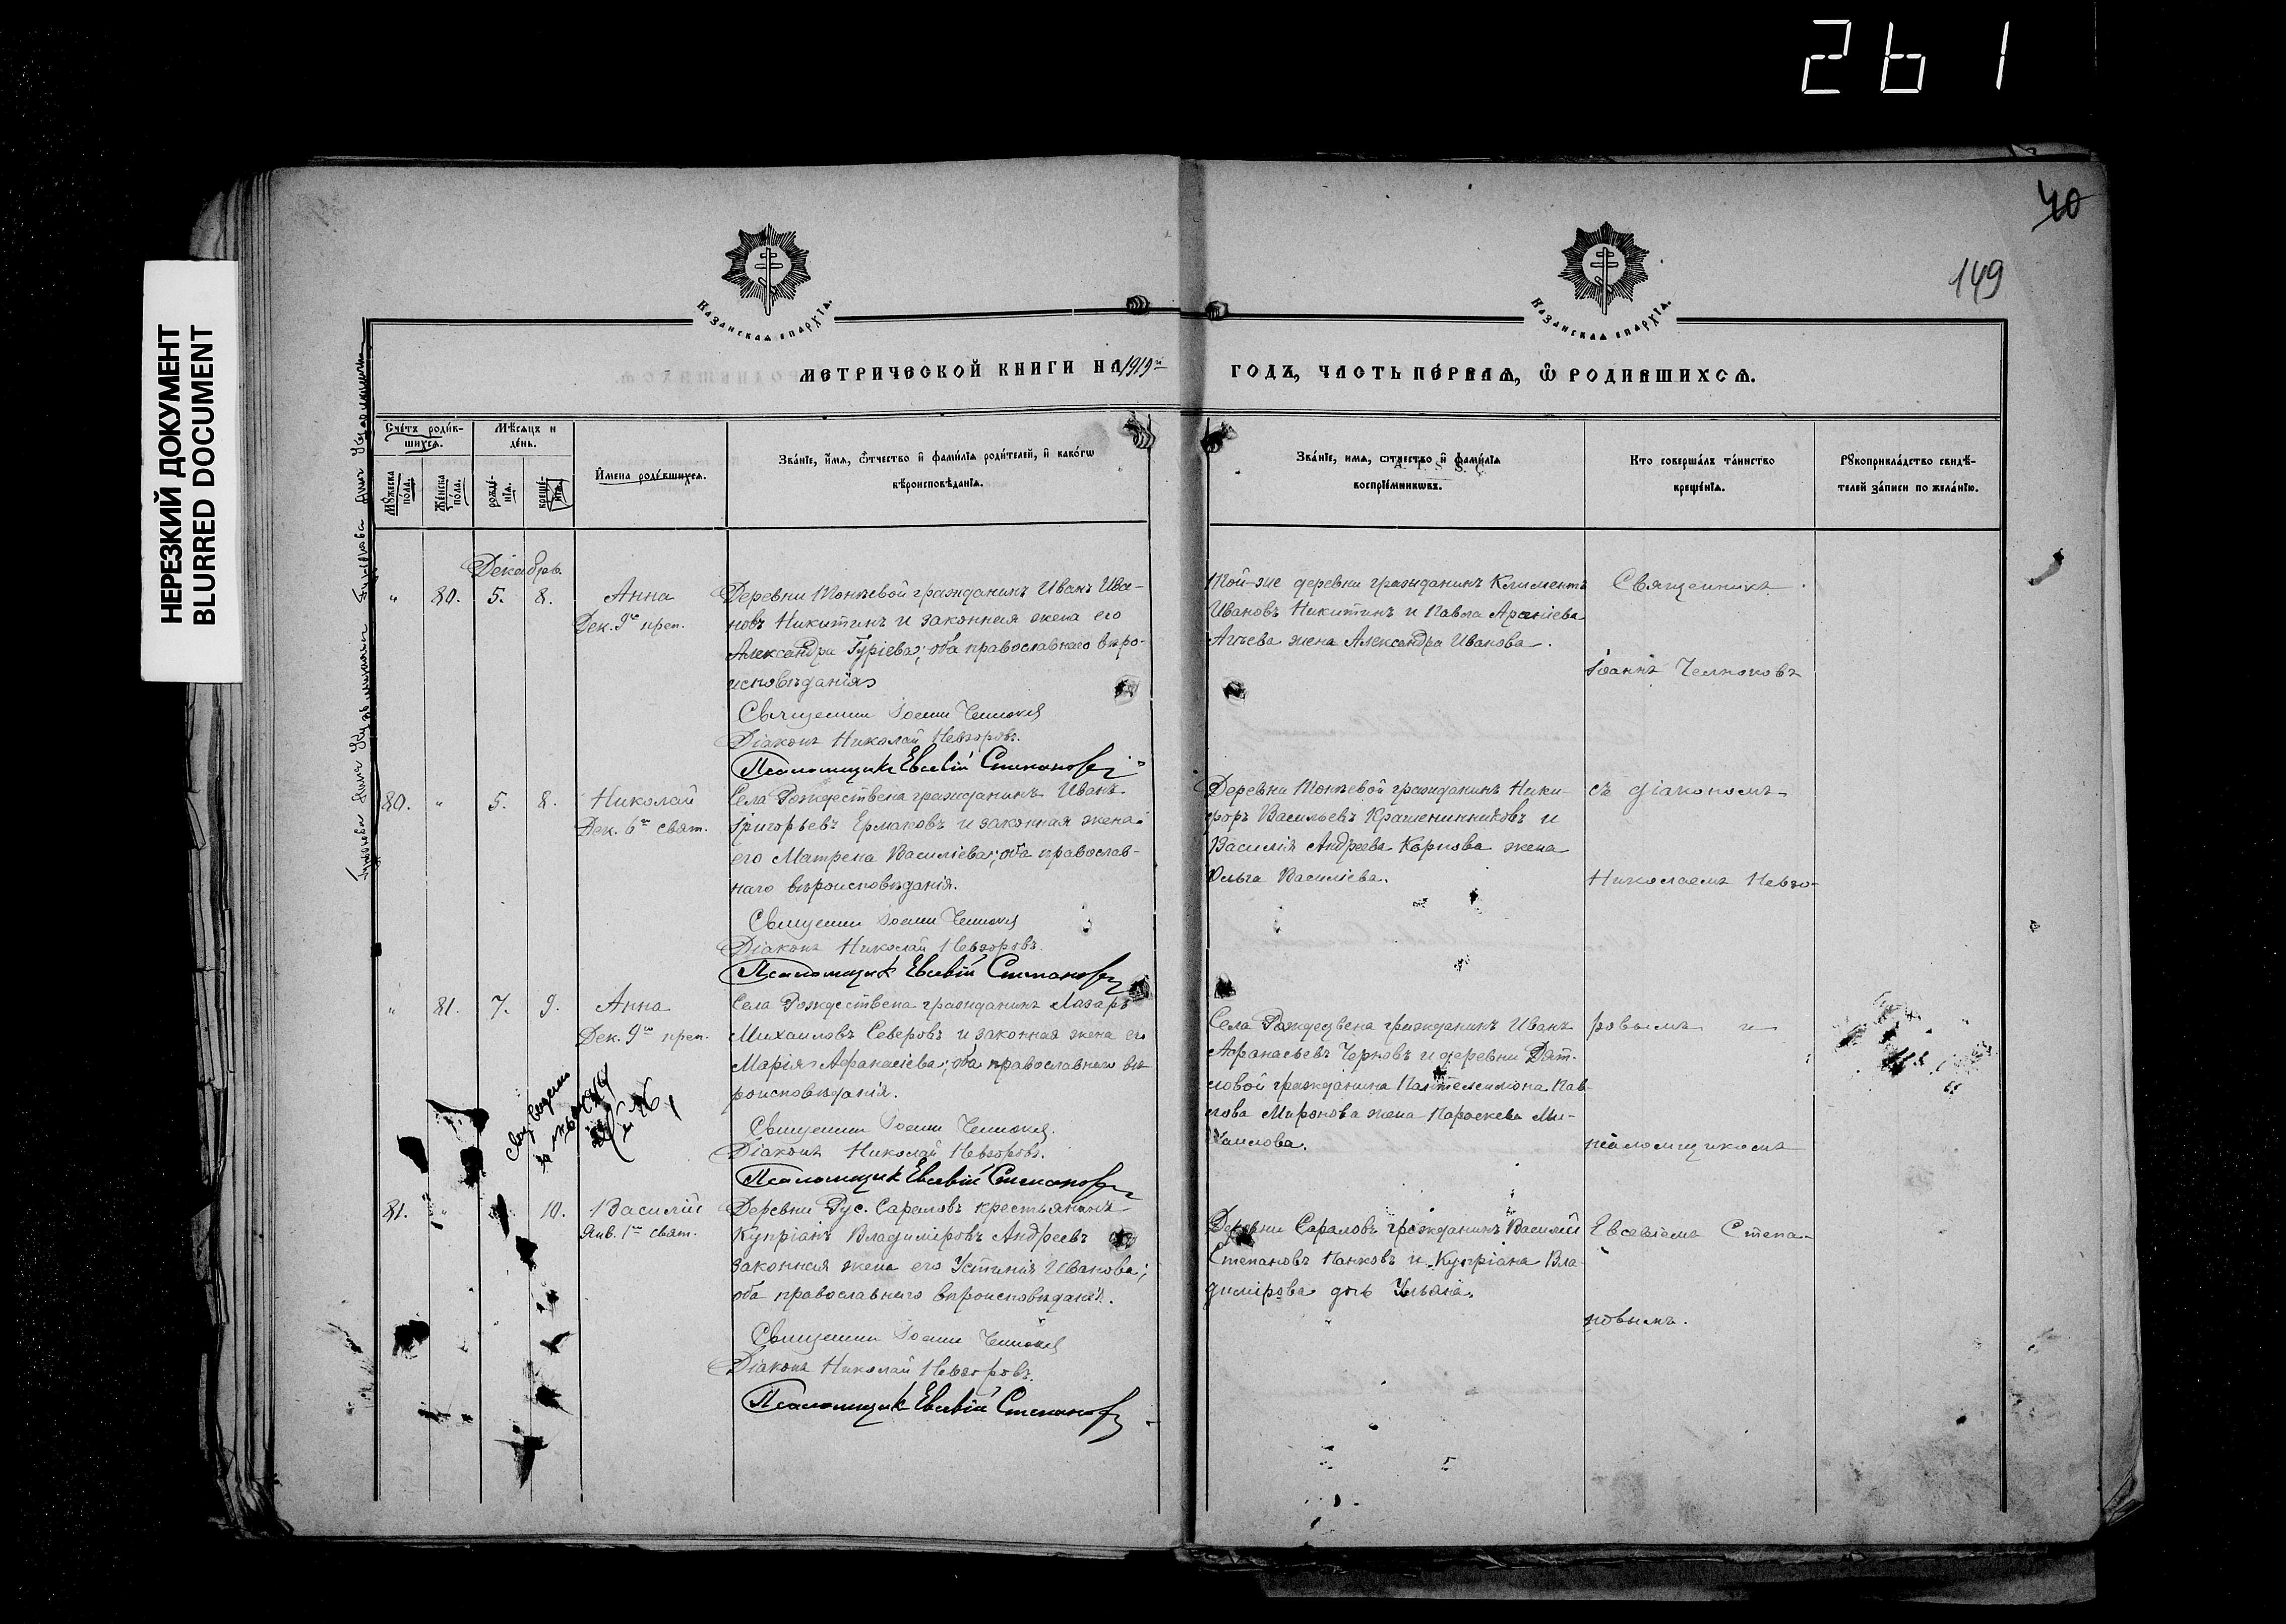 261
НЕРЕЗКИЙ ДОКУМЕНТ
BLURRED DOCUMENT
40
149
Казанская епархїѧ.
Казанская епархїѧ.
МЕТРИЧЕСКОЙ КНИГИ НА 1919й
ГОДЪ, ЧАСТЬ ПЕРВАѦ, Ѡ РОДИВШИХСѦ.
Счетъ родив-
шихся.
Мѣсяцъ и
день.
Мужеска
пола.
Женска
пола.
рожде-
нїя.
креще-
нїя.
Имена родившихся.
Званїе, имя, ѿчество и фамилїя родителей, и какогѡ
вѣроисповѣданїя.
Званїе, имя, ѿчество и фамилїя
воспрїемникѡвъ.
Кто совершалъ таинство
крещенїя.
Рукоприкладство свидѣ-
телей записи по желанїю.
Декабрь.
" 80. 5. 8. Анна
Дек. 9го преп.
Деревни гражданинъ Иванъ Ива-
новъ Никитинъ и законная жена его
Александра Гуріева; оба православнаго вѣро-
исповѣданія
Діаконъ Николай Невзоровъ.
Псаломщикъ Евсевій Степановъ
Той-же деревни гражданинъ Климентъ
Ивановъ Никитинъ и Павла
жена Александра Иванова.
Священникъ
Іоаннъ
80. " 5. 8. Николай
Дек. 6го свят.
Села Рождествена гражданинъ Иванъ
Григорьевъ Ермаковъ и законная жена
его Матрена Василіева; оба православ-
наго вѣроисповѣданія.
Діаконъ Николай Невзоровъ.
Псаломщикъ Евсевій Степановъ
Деревни гражданинъ Ники-
форъ Васильевъ Крашенинниковъ и
Василія Андреева Карпова жена
Ольга Василіева.
съ діакономъ
Николаемъ Невзо-
" 81. 7. 9. Анна
Дек. 9го преп.
Села Рождествена гражданинъ Лазарь
Михаиловъ Северовъ и законная жена его
Марія Афанасіева; оба православнаго вѣ-
роисповѣданія.
Діаконъ Николай Невзоровъ.
Псаломщикъ Евсевій Степановъ
Села гражданинъ Иванъ
Афанасьевъ Черновъ и деревни Дят-
ловой гражданина Пантелеимона Пав-
лова Миронова жена Параскева Ми-
хаилова.
ровымъ и
псаломщикомъ
81. " 10. Василій
Янв. 1го свят.
Деревни Рус. Сараловъ крестьянинъ
Купріанъ Владиміровъ Андреевъ
законная жена его Устинія Иванова;
оба православнаго вѣроисповѣданія.
Діаконъ Николай Невзоровъ.
Псаломщикъ Евсевій Степановъ
Деревни Сараловъ гражданинъ Василій
Степановъ Панковъ и Купріана Вла-
димірова дочь Ульяна.
Евсевіемъ Степа-
новымъ.